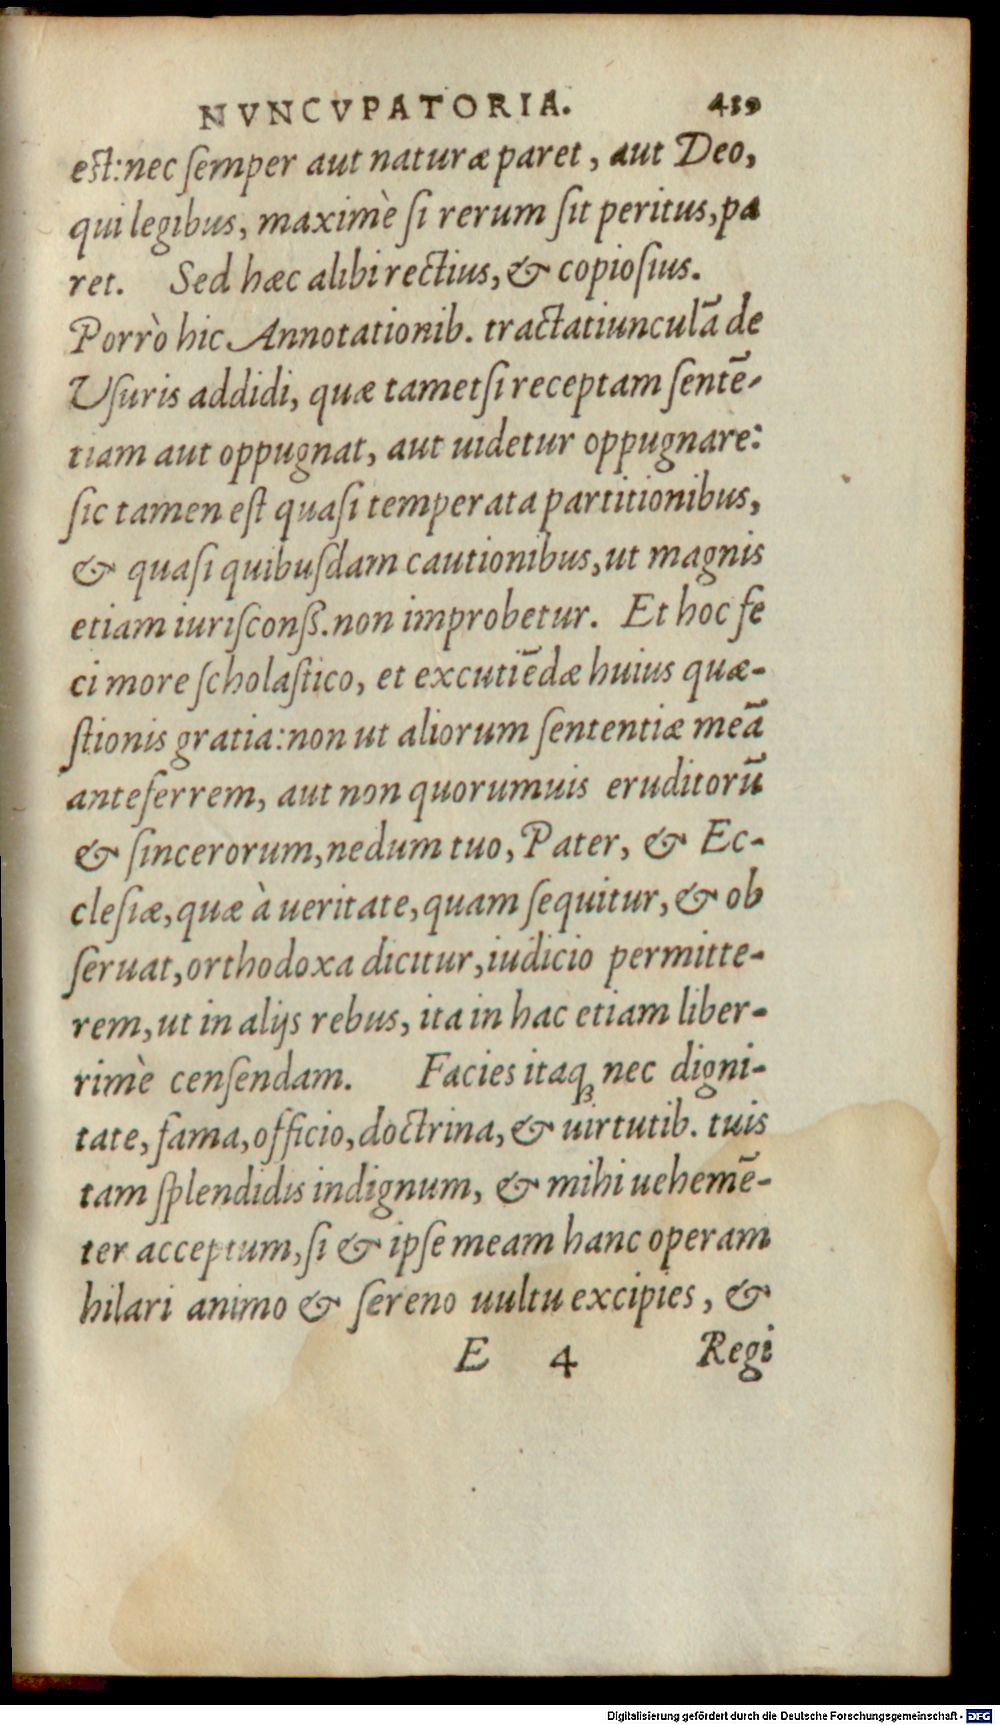 NVNCVPATORIA. 439
est: nec ſemper aut naturæ paret, aut Deo,
qui legibus, maximè ſi rerum ſit peritus, pa
ret. Sed hæc alibi rectius, & copioſius.
Porrò hic Annotationib. tractatiunculā de
Uſuris addidi, quæ tametſi receptam ſentē-
tiam aut oppugnat, aut uidetur oppugnare:
ſic tamen eſt quaſi temperata partitionibus,
& quaſi quibuſdam cautionibus, ut magnis
etiam iuriſconſß. non improbetur. Et hoc fe
ci more ſcholaſtico, et excutiēdæ huius quæ-
ſtionis gratia: non ut aliorum ſententiæ meā
anteferrem, aut non quorumuis eruditorū
& ſincerorum, nedum tuo, Pater, & Ec-
cleſiæ, quæ à ueritate, quam ſequitur, & ob
ſeruat, orthodoxa dicitur, iudicio permitte-
rem, ut in alijs rebus, ita in hac etiam liber-
rimè cenſendam. Facies itaqꝫ nec digni-
tate, fama, officio, doctrina, & uirtutib. tuis
tam ſplendidis indignum, & mihi uehemē-
ter acceptum, ſi & ipſe meam hanc operam
hilari animo & ſereno uultu excipies, &
E 4 Regi
Digitalisierung gefördert durch die Deutsche Forschungsgemeinschaft - DFG